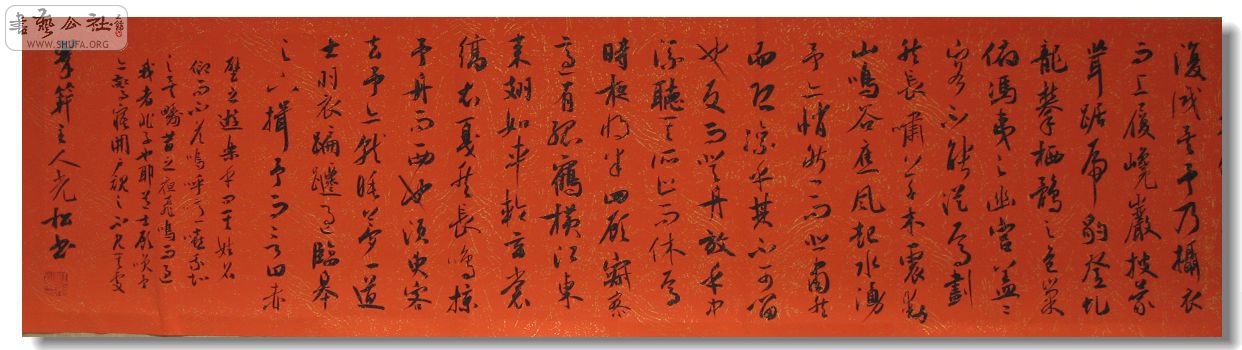 書藝公社
WWW.SHUFA.ORG
復識矣予乃攝衣
而上履巉巖披蒙
茸踞虎豹登虬
龍攀栖鶻之危巢
俯馮夷之幽宮蓋二
客不能從焉劃
然長嘯草木震動
山鳴谷應風起水湧
予亦悄然而悲肅然
而恐凜乎其不可留
也反而登舟放乎中
流聽其所止而休焉
時夜將半四顧寂寥
適有孤鶴橫江東
來翅如車輪玄裳
縞衣戛然長鳴掠
予舟而西也須臾客
去予亦就睡夢一道
士羽衣蹁躚過臨皋
之下揖予而言曰赤
壁之遊樂乎問其姓名
俛而不答嗚呼噫嘻我知
之矣疇昔之夜飛鳴而過
我者非子也耶道士顧笑予
亦驚寤開戶視之不見其處
主人光松書